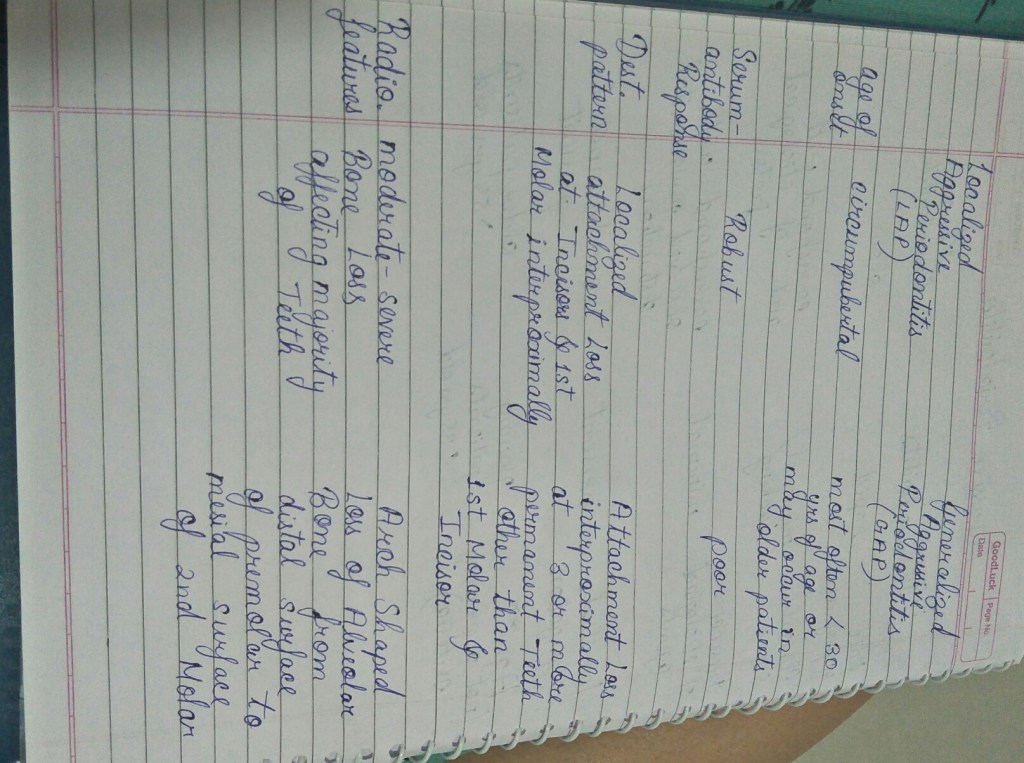 GOODLUCK Page No.
Date
Localized Generalized
Aggressive Aggressive
Periodontitis Periodontitis
(LAP) (GAP)
age of circumpubertal most often < 30
onset yrs of age or
may occur in
older patients
Serum- Robust poor
antibody
Response
Dist. Localized Attachment Loss
pattern attachment Loss interproximally
at Incisors & 1st at 3 or more
Molar interproximally permanent Teeth
other than
1st Molar &
Incisor
Radio. moderate-severe Arch Shaped
features Bone Loss Loss of Alveolar
affecting majority Bone from
of Teeth distal surface
of premolar to
mesial surface
of 2nd Molar